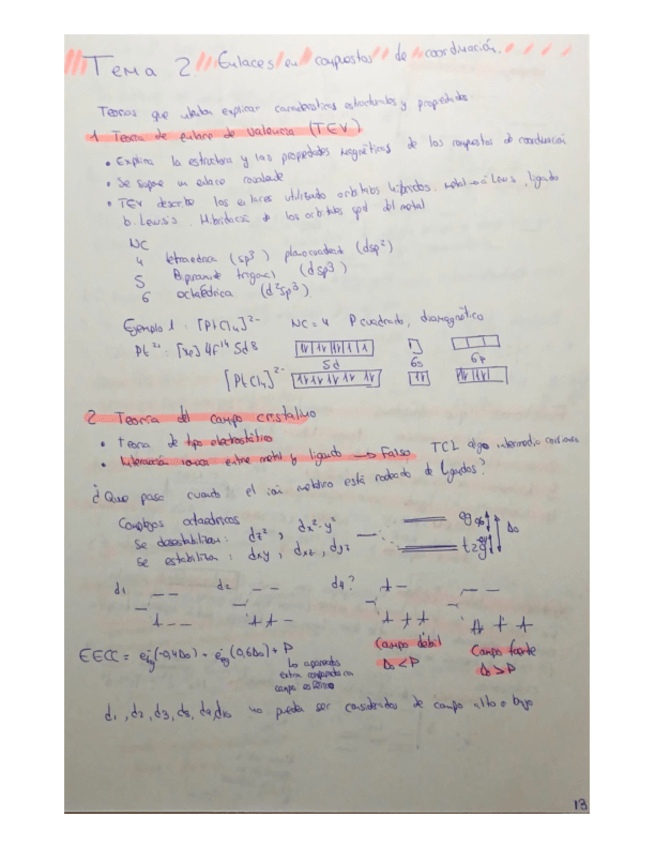 Tema 2. Enlaces en compuestos de coordinación.
Teorías que intentan explicar características estructurales y propiedades.
1. Teoría de enlace de valencia (TEV)
• Explica la estructura y las propiedades magnéticas de los compuestos de coordinación
• Se supone un enlace covalente
• TEV describe los enlaces utilizado orbitales híbridos. metal → á Lewis, ligado
b. Lewis. Hibridación de los orbitales spd del metal
NC
4 tetraédrica (sp3) planocuadrada (dsp2)
5 Bipiramide trigonal (dsp3)
6 octaédrica (d2sp3)
Ejemplo 1: [PtCl4]2- NC = 4 P cuadrado, diamagnético
Pt2+: [Xe] 4f14 5d8
5d 6s 6p
[PtCl4]2-
2 Teoría del campo cristalino
• Teoría de tipo electrostático
• Interacción iónica entre metal y ligado → Falso TCL algo intermedio
¿Que pasa cuando el ión metálico está rodeado de ligandos?
Complejos octaédricos
Se desestabilizan: dz2, dx2-y2 eg Δo
Se estabilizan: dxy, dxz, dyz t2g
d1 d2 d4?
EECC = (-0,4Δo) + (0,6Δo) + P
Campo débil Campo fuerte
Δo < P Δo > P
d1, d2, d3, d8, d9, d10 no pueden ser considerados de campo alto o bajo
13